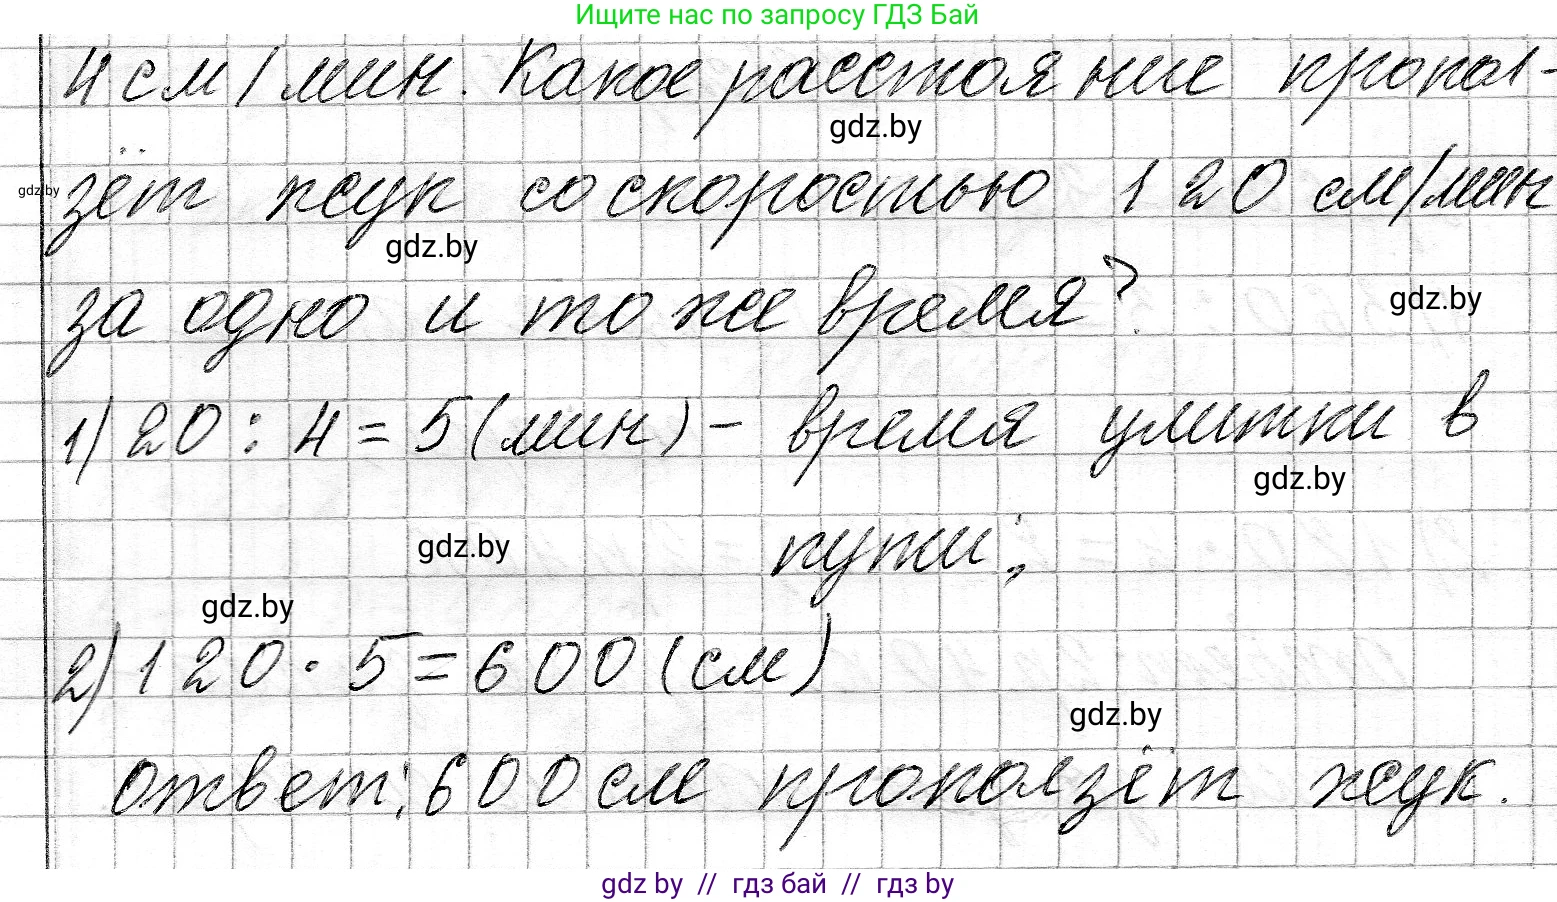 Ищите нас по запросу ГДЗ Бай
4 см/мин. Какое расстояние пропол-
gdz.by
зёт жук со скоростью 120 см/мин
gdz.by
gdz.by
за одно и то же время?
gdz.by
1) 20 : 4 = 5 (мин) - время улитки в
gdz.by
пути;
gdz.by
gdz.by
2) 120 · 5 = 600 (см)
gdz.by
ответ: 600 см проползёт жук.
gdz by // гдз бай // гдз by